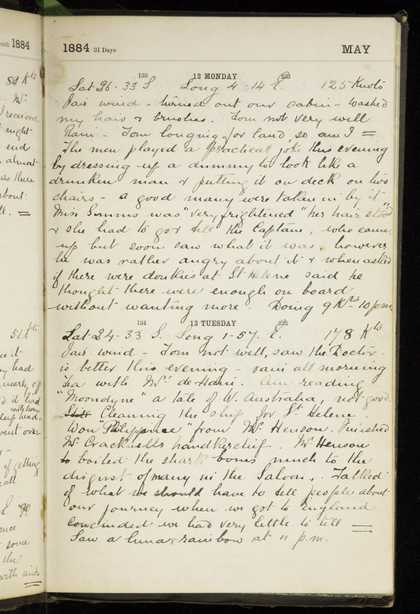 1884
1884 31 Days MAY
133
12 MONDAY
Lat 26.33 S. Long 4.14 E. 125 Knots
Fair wind - turned out our cabin - washed
my hair & brushes. Tom not very well
Tom longing for land, so am I =
The men played a practical joke this evening
by dressing up a dummy to look like a
drunken man & putting it on deck on two
chairs - a good many were taken in by it -
Miss was "very frightened" her hair stood
& she had to go & tell the Captain, who came
up but soon saw what it was, however
he was rather angry about it & when asked
if there were donkies at St Helena said he
thought there were enough on board
without wanting more. Doing 9 Kts 10 p.m.
134
13 TUESDAY
Lat 24.33 S. Long 1-57. E. 178 Kts
Fair wind - Tom not well, saw the Doctor.
is better this evening - sani all morning
was with Mrs de Hari. Am reading
"Moondyne" a tale of W. Australia, not good
Cleaning the ship for St Helena.
Won "Philippine" from Mr Henson. Finished
Mr Cracknells handkerchief. Mr Henson
boiled the shark bones much to the
disgust of many in the Saloon. Talked
of what we should have to tell people about
our journey when we got to England
concluded we had very little to tell =
Saw a lunar rainbow at 11 p.m.